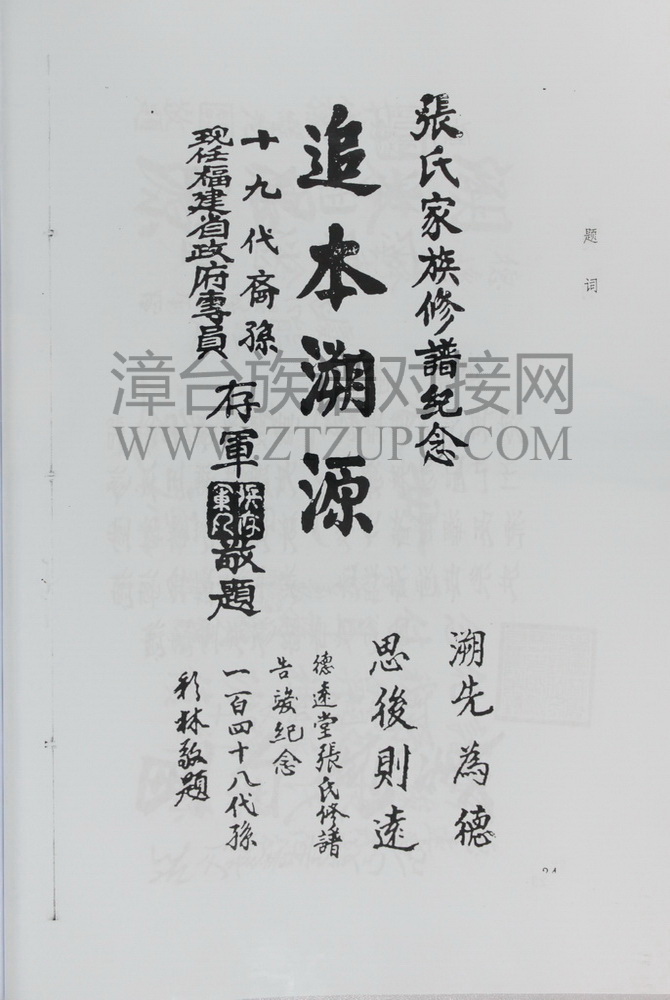 题词
張氏家族修譜纪念
追本溯源
十九代裔孫
现任福建省政府專員
存軍
敬題
溯先為德
思後則遠
德遠堂張氏修譜
告竣纪念
一百四十八代孫
彩林敬題
漳台族谱对接网
WWW.ZTZUPU.COM